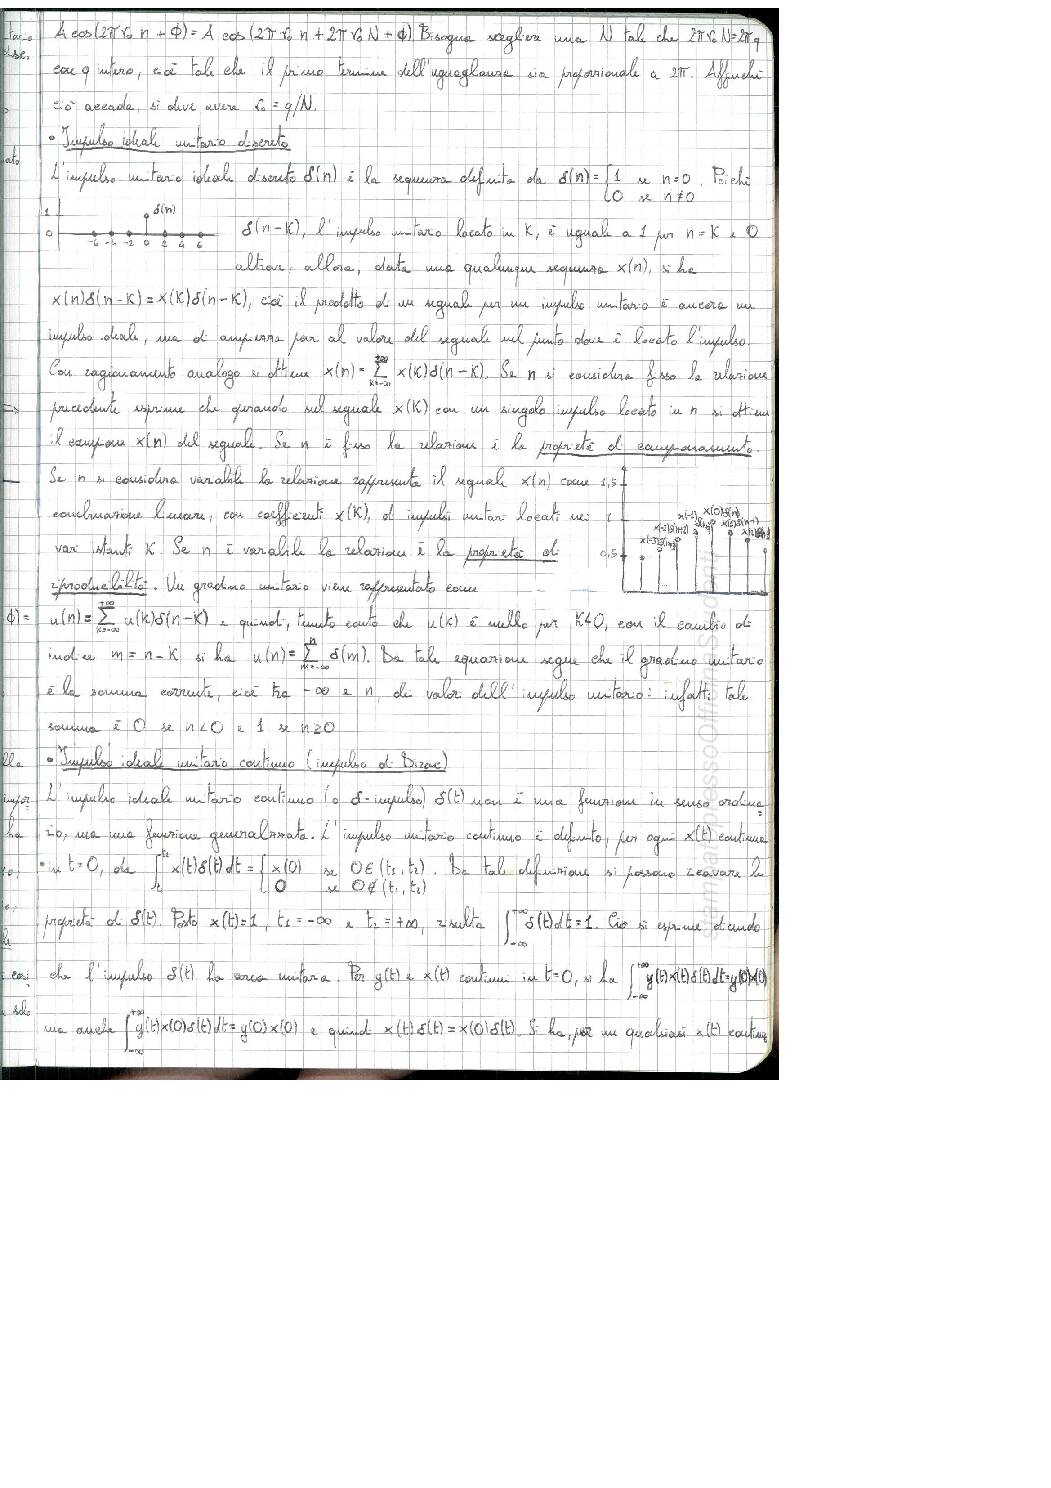 A cos(2π r₀ n + Φ) = A cos(2π r₀ n + 2π r₀ N + Φ) Bisogna scegliere una N tale che 2π r₀ N = 2π q
con q intero, cioè tale che il primo termine dell'uguaglianza sia proporzionale a 2π. Affinché
ciò accada, si deve avere r₀ = q/N.
• Impulso ideale unitario discreto
L'impulso unitario ideale discreto δ(n) è la sequenza definita da δ(n) = {1 se n=0 . Poiché
0 se n≠0
1 δ(n)
0 -6 -4 -2 0 2 4 6
δ(n-K), l'impulso unitario locato in K, è uguale a 1 per n = K e 0
altrov., allora, data una qualunque sequenza x(n), si ha
x(n)δ(n-K) = x(K)δ(n-K), cioè il prodotto di un segnale per un impulso unitario è ancora un
impulso ideale, ma di ampiezza pari al valore del segnale nel punto dove è locato l'impulso.
Con ragionamento analogo si ottiene x(n) = Σ_{K=-∞}^{+∞} x(K)δ(n-K). Se n si considera fisso la relazione
precedente esprime che operando sul segnale x(K) con un singolo impulso locato in n si ottiene
il campione x(n) del segnale. Se n è fisso la relazione è la proprietà di campionamento.
Se n si considera variabile la relazione rappresenta il segnale x(n) come
combinazione lineare, con coefficienti x(K), di impulsi unitari locati nei
vari istanti K. Se n è variabile la relazione è la proprietà di
riproducibilità. Un gradino unitario viene rappresentato come
1,5
1
0,5
u(n) = Σ_{K=-∞}^{+∞} u(K)δ(n-K) e quindi, tenuto conto che u(K) è nullo per K<0, con il cambio di
indice m = n-K si ha u(n) = Σ_{m=-∞}^{n} δ(m). Da tale equazione segue che il gradino unitario
è la somma corrente, cioè tra -∞ e n, dei valori dell'impulso unitario: infatti tale
somma è 0 se n<0 e 1 se n≥0
• Impulso ideale unitario continuo (impulso di Dirac)
L'impulso ideale unitario continuo (o δ-impulso) δ(t) non è una funzione in senso ordina
rio, ma una funzione generalizzata. L'impulso unitario continuo è definito, per ogni x(t) continua
in t=0, da ∫_{t₁}^{t₂} x(t)δ(t)dt = {x(0) se 0∈(t₁,t₂) . Da tale definizione si possono ricavare le
0 se 0∉(t₁,t₂)
proprietà di δ(t). Posto x(t)=1, t₁=-∞ e t₂=+∞, risulta ∫_{-∞}^{+∞} δ(t)dt=1. Ciò si esprime dicendo
che l'impulso δ(t) ha area unitaria. Per y(t) e x(t) continui in t=0, si ha ∫_{-∞}^{+∞} y(t)x(t)δ(t)dt=y(0)x(0)
ma anche ∫_{-∞}^{+∞} y(t)x(0)δ(t)dt=y(0)x(0) e quindi x(t)δ(t)=x(0)δ(t). Si ha, per un qualsiasi x(t) continuo